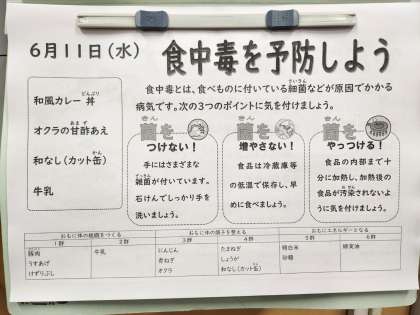 6月11日(水)
食中毒を予防しよう
和風カレー丼
オクラの甘酢あえ
和なし(カット缶)
牛乳
食中毒とは、食べものに付いている細菌などが原因でかかる
病気です。次の3つのポイントに気を付けましょう。
菌を
つけない!
手にはさまざまな
雑菌が付いています。
石けんでしっかり手を
洗いましょう。
菌を
増やさない!
食品は冷蔵庫等
の低温で保存し、早
めに食べましょう。
菌を
やっつける!
食品の内部まで十
分に加熱し、加熱後の
食品が汚染されないよ
うに気を付けましょう。
おもに体の組織をつくる
おもに体の調子を整える
おもにエネルギーとなる
1群 2群 3群 4群 5群 6群
豚肉 牛乳 にんじん たまねぎ 精白米
うすあげ 青ねぎ しょうが 砂糖
けずりぶし オクラ 和なし(カット缶)